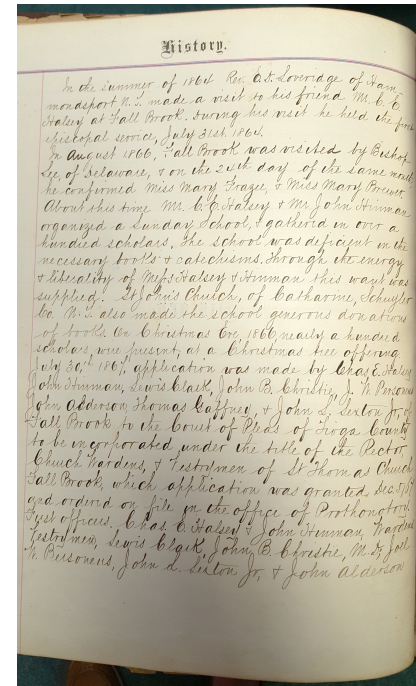 History.
In the summer of 1864 Rev. E. D. Loveridge of Ham-
mondsport N. Y. made a visit to his friend Mr. C. E.
Halsey at Fall Brook. During his visit he held the first
episcopal service, July 31st 1864.
In August 1866, Fall Brook was visited by Bishop
Lee, of Delaware, & on the 24th day of the same month
he confirmed Miss Mary Frazer, & Miss Mary Brewer.
About this time Mr. C. E. Halsey & Mr. John Hinman
organized a Sunday School, & gathered in over a
hundred scholars. The school was deficient in the
necessary books & catechisms. Through the energy
& liberality of Messs Halsey & Hinman this want was
supplied. St John's Church, of Catharine, Schuyler
Co. N. Y. also made the school generous donations
of books. On Christmas Eve. 1866, nearly a hundred
scholars, were present, at a Christmas tree offering
July 30th 1867, application was made by Chas E. Halsey
John Hinman, Lewis Clack, John B. Christie, J. W. Personeus
John Alderson, Thomas Gaffney, & John L. Sexton Jr, of
Fall Brook to the Court of Pleas of Tioga County
to be incorporated under the title of the Rector,
Church Wardens, & Vestrymen of St Thomas Church
Fall Brook, which application was granted Dec. 5,
and ordered on file in the office of Prothonotary
First officers. Chas. E. Halsey & John Hinman, Wardens
Vestrymen, Lewis Clack, John B. Christie, M. D, Joel
W. Personeus, John L. Sexton Jr, & John Alderson